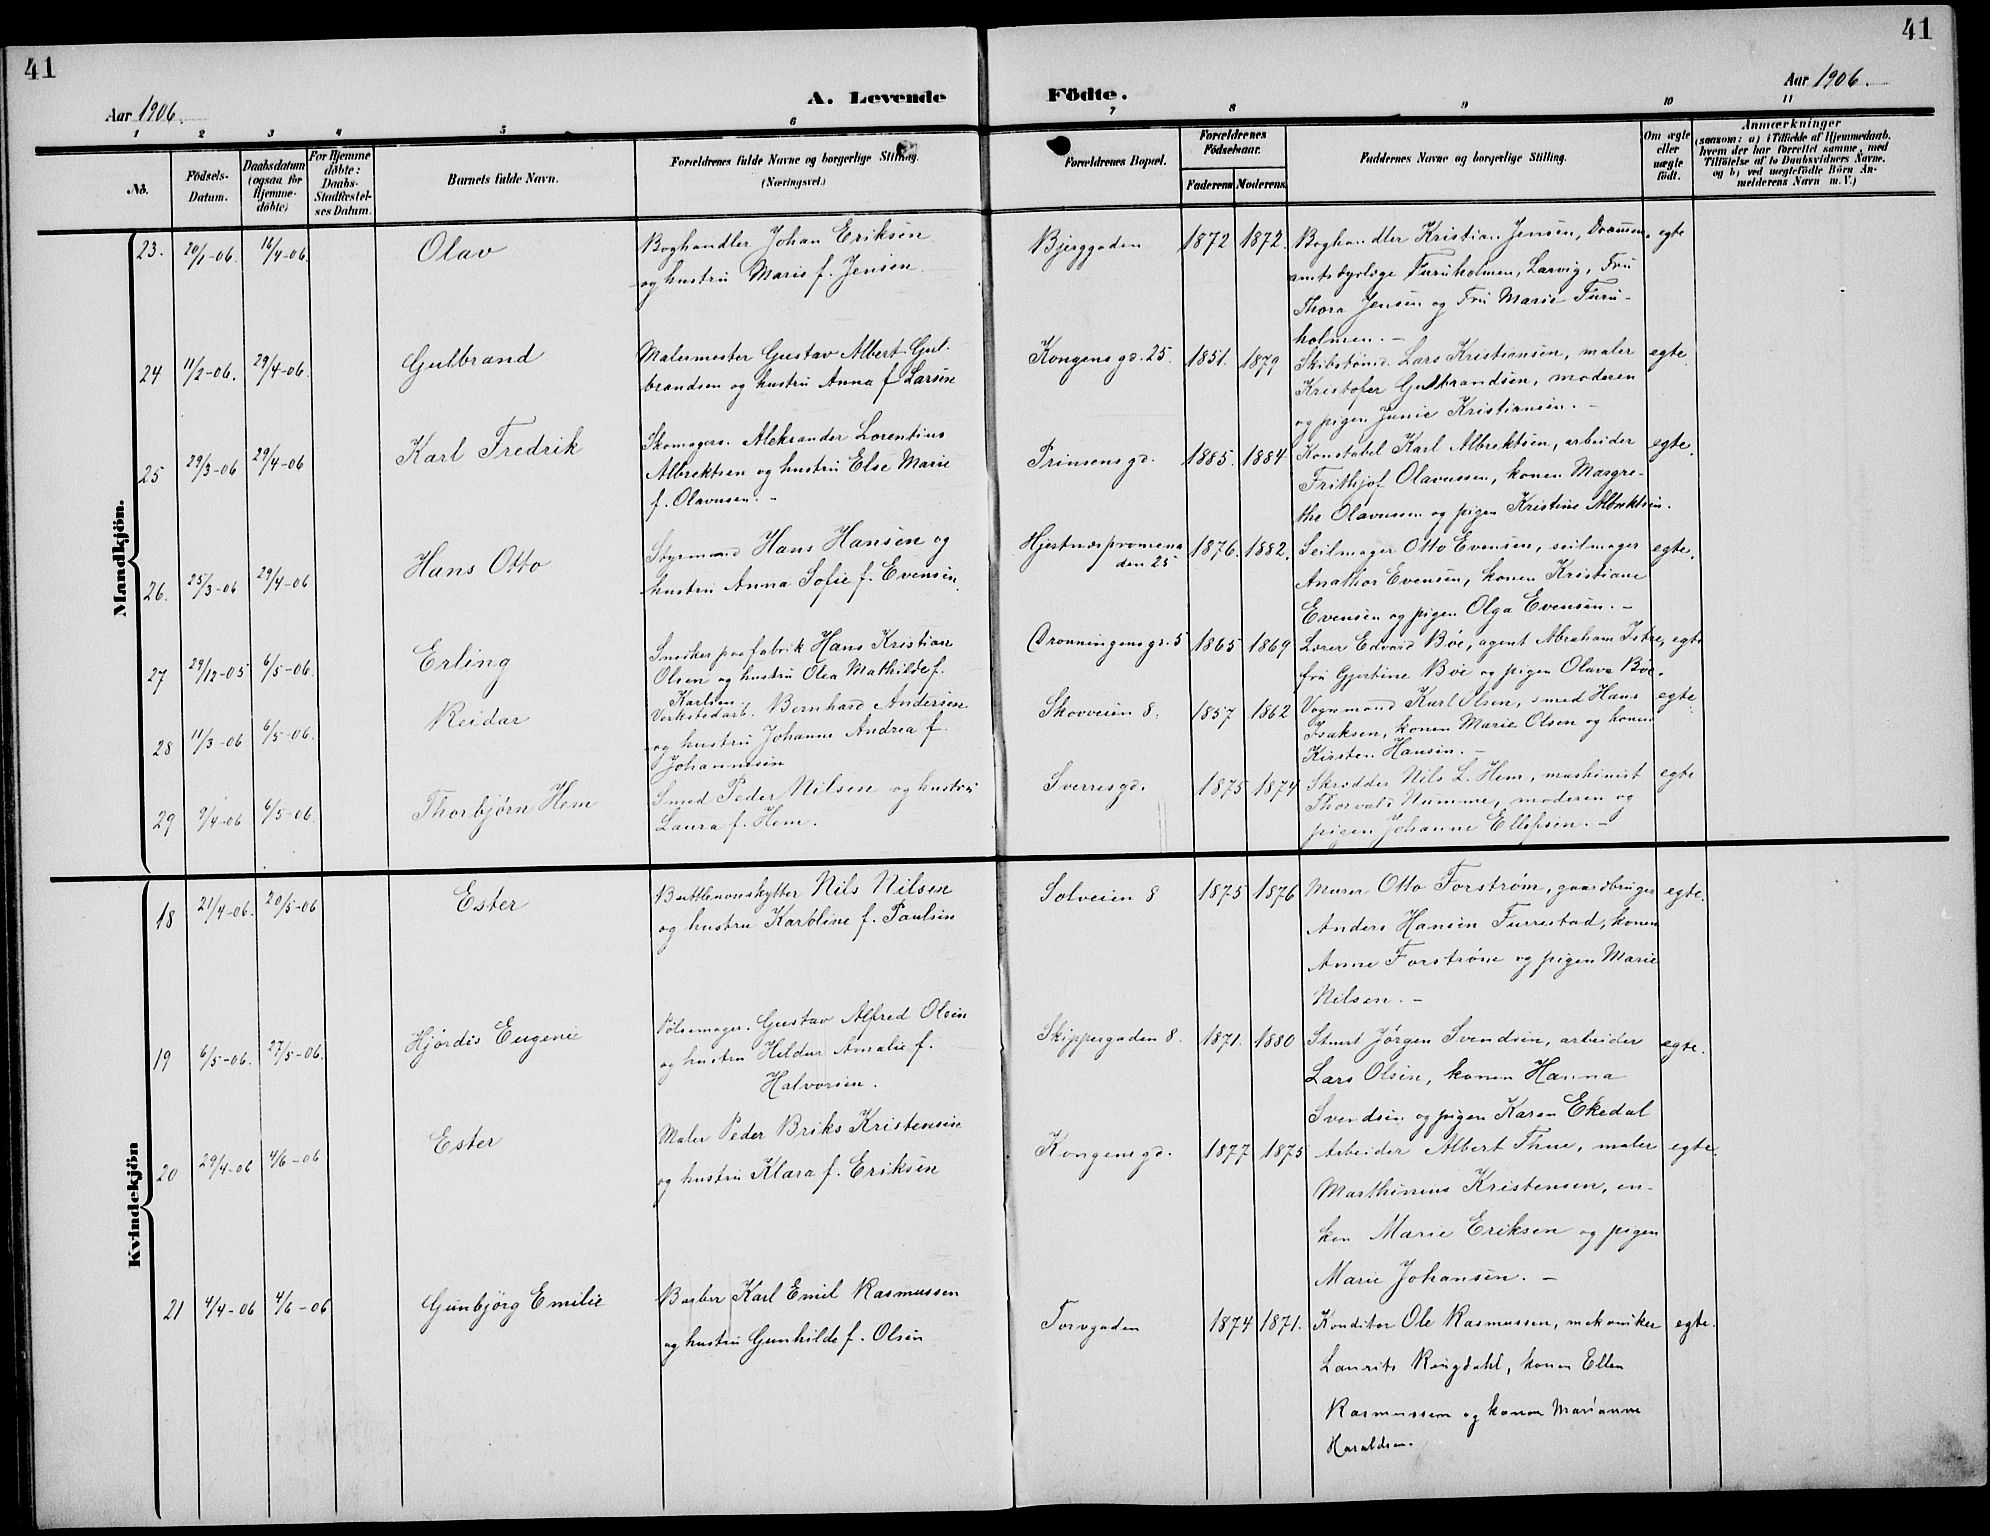 41
41
Aar 1906.
A. Levende
Födte.
Aar 1906.
1 2 3 4 5 6 7 8 9 10 11
No.
Födsels-
Datum.
Daabsdatum
(ogsaa for
Hjemme-
döbte)
For Hjemme
döbte:
Daabs-
Stadfæstel-
ses Datum.
Barnets fulde Navn.
Forældrenes fulde Navne og borgerlige Stilling.
(Næringsvei.)
Forældrenes Bopæl.
Forældrenes
Födselsaar.
Faderens
Moderens
Faddernes Navne og borgerlige Stilling.
Om ægte
eller
uægte
födt.
Anmærkninger
(saasom: a) i Tilfælde af Hjemmedaab.
hvem der har forrettet samme, med
Tilföielse af to Daabsvidners Navne.
og b) ved uægtefödte Börn An-
melderens Navn m. V.)
Mandkjön.
23. 20/1-06. 16/4-06. Olav
Boghandler Johan Eriksen
og hustru Marie f. Jensen
Bjerggaden 1872 1872.
Boghandler Kristian Jensen, Drammen, egte
amtsdyrlæge Furuholmen, Larvig, Fru
Thora Jensen og Fru Marie Furu-
holmen. -
24 11/2-06. 29/4-06. Gulbrand
Malermester Gustav Albert Gul-
brandsen og hustru Anna f Larsen
Kongensgd. 25. 1851. 1879
Skibstømd. Lars Kristiansen, maler egte.
Kristofer Gulbrandsen, moderen
og pigen Junie Kristiansen. -
25 29/3-06 29/4-06 Karl Fredrik
Skomagers. Aleksander Lorentius
Albrektsen og hustru Else Marie
f. Olavusen. -
Prinsensgd. 1885. 1884
Konstabel Karl Albrektsen, arbeider egte.
Frithjof Olavussen, konen Margre-
the Olavussen og pigen Kristine Albrektsen.
26. 25/3-06 29/4-06 Hans Otto
Styrmand Hans Hansen og
hustru Anna Sofie f. Evensen.
Hjertnespromena
den 25 1876. 1882.
Seilmager Otto Evensen, seilmager egte.
Anathor Evensen, konen Kristiane
Evensen og pigen Olga Evensen. -
27 29/12-05 6/5-06. Erling
Snedker paa fabrik Hans Kristian
Olsen og hustru Olea Mathilde f.
Karlsen.
Dronningensgd. 5 1865 1869
Lærer Edvard Bøe, agent Abraham Istre, egte
fru Gjertine Bøe og pigen Olava Bøe.
28 11/3-06 6/5-06. Reidar
Verkstedarb. Bernhard Andersen
og hustru Johanne Andrea f.
Johannesen
Skovveien 8. 1857 1862
Vognmand Karl Olsen, smed Hans egte
Isaksen, konen Marie Olsen og konen
Kirsten Hansen. -
29 9/4-06 6/5-06. Thorbjørn Hem
Smed Peder Nilsen og hustru
Laura f. Hem.
Sverresgd. 1875 1874
Skrædder Nils L. Hem, maskinist egte
Thorvald Numme, moderen og
pigen Johanne Ellefsen. -
Kvindekjön
18 21/4-06. 20/5-06 Ester
Buttlenoseskytter Nils Nilsen
og hustru Karoline f. Paulsen
Solveien 8 1875 1876
Murer Otto Forstrøm, gaardbruger egte.
Anders Hansen Furrestad, konen
Anne Forstrøm og pigen Marie
Nilsen. -
19 6/5-06. 27/5-06. Hjørdis Eugenie
Pølsemager. Gustav Alfred Olsen
og hustru Hildur Amalie f.
Halvorsen.
Skippergaden 8. 1871. 1880
Stuert Jørgen Svendsen, arbeider egte.
Lars Olsen, konen Hanna
Svendsen og pigen Karen Ekedal
20 29/4-06 4/6-06 Ester
Maler Peder Briks Kristensen
og hustru Klara f. Eriksen
Kongensgd. 1877 1875
Arbeider Albert Thue, maler egte.
Marthinius Kristensen, en-
ken Marie Eriksen og pigen
Marie Johansen. -
21 4/4-06 4/6-06 Gunbjørg Emilie
Barber Karl Emil Rasmussen
og hustru Gunhilde f. Olsen
Torvgaden 1874 1871.
Konditor Ole Rasmussen, mekaniker egte.
Laurits Ringdahl, konen Ellen
Rasmussen og konen Marianne
Haraldsen.